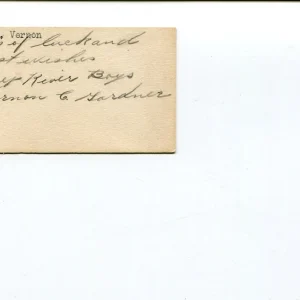 Vernon
s of luck and
st wishes
River Boys
rnon C Gardner